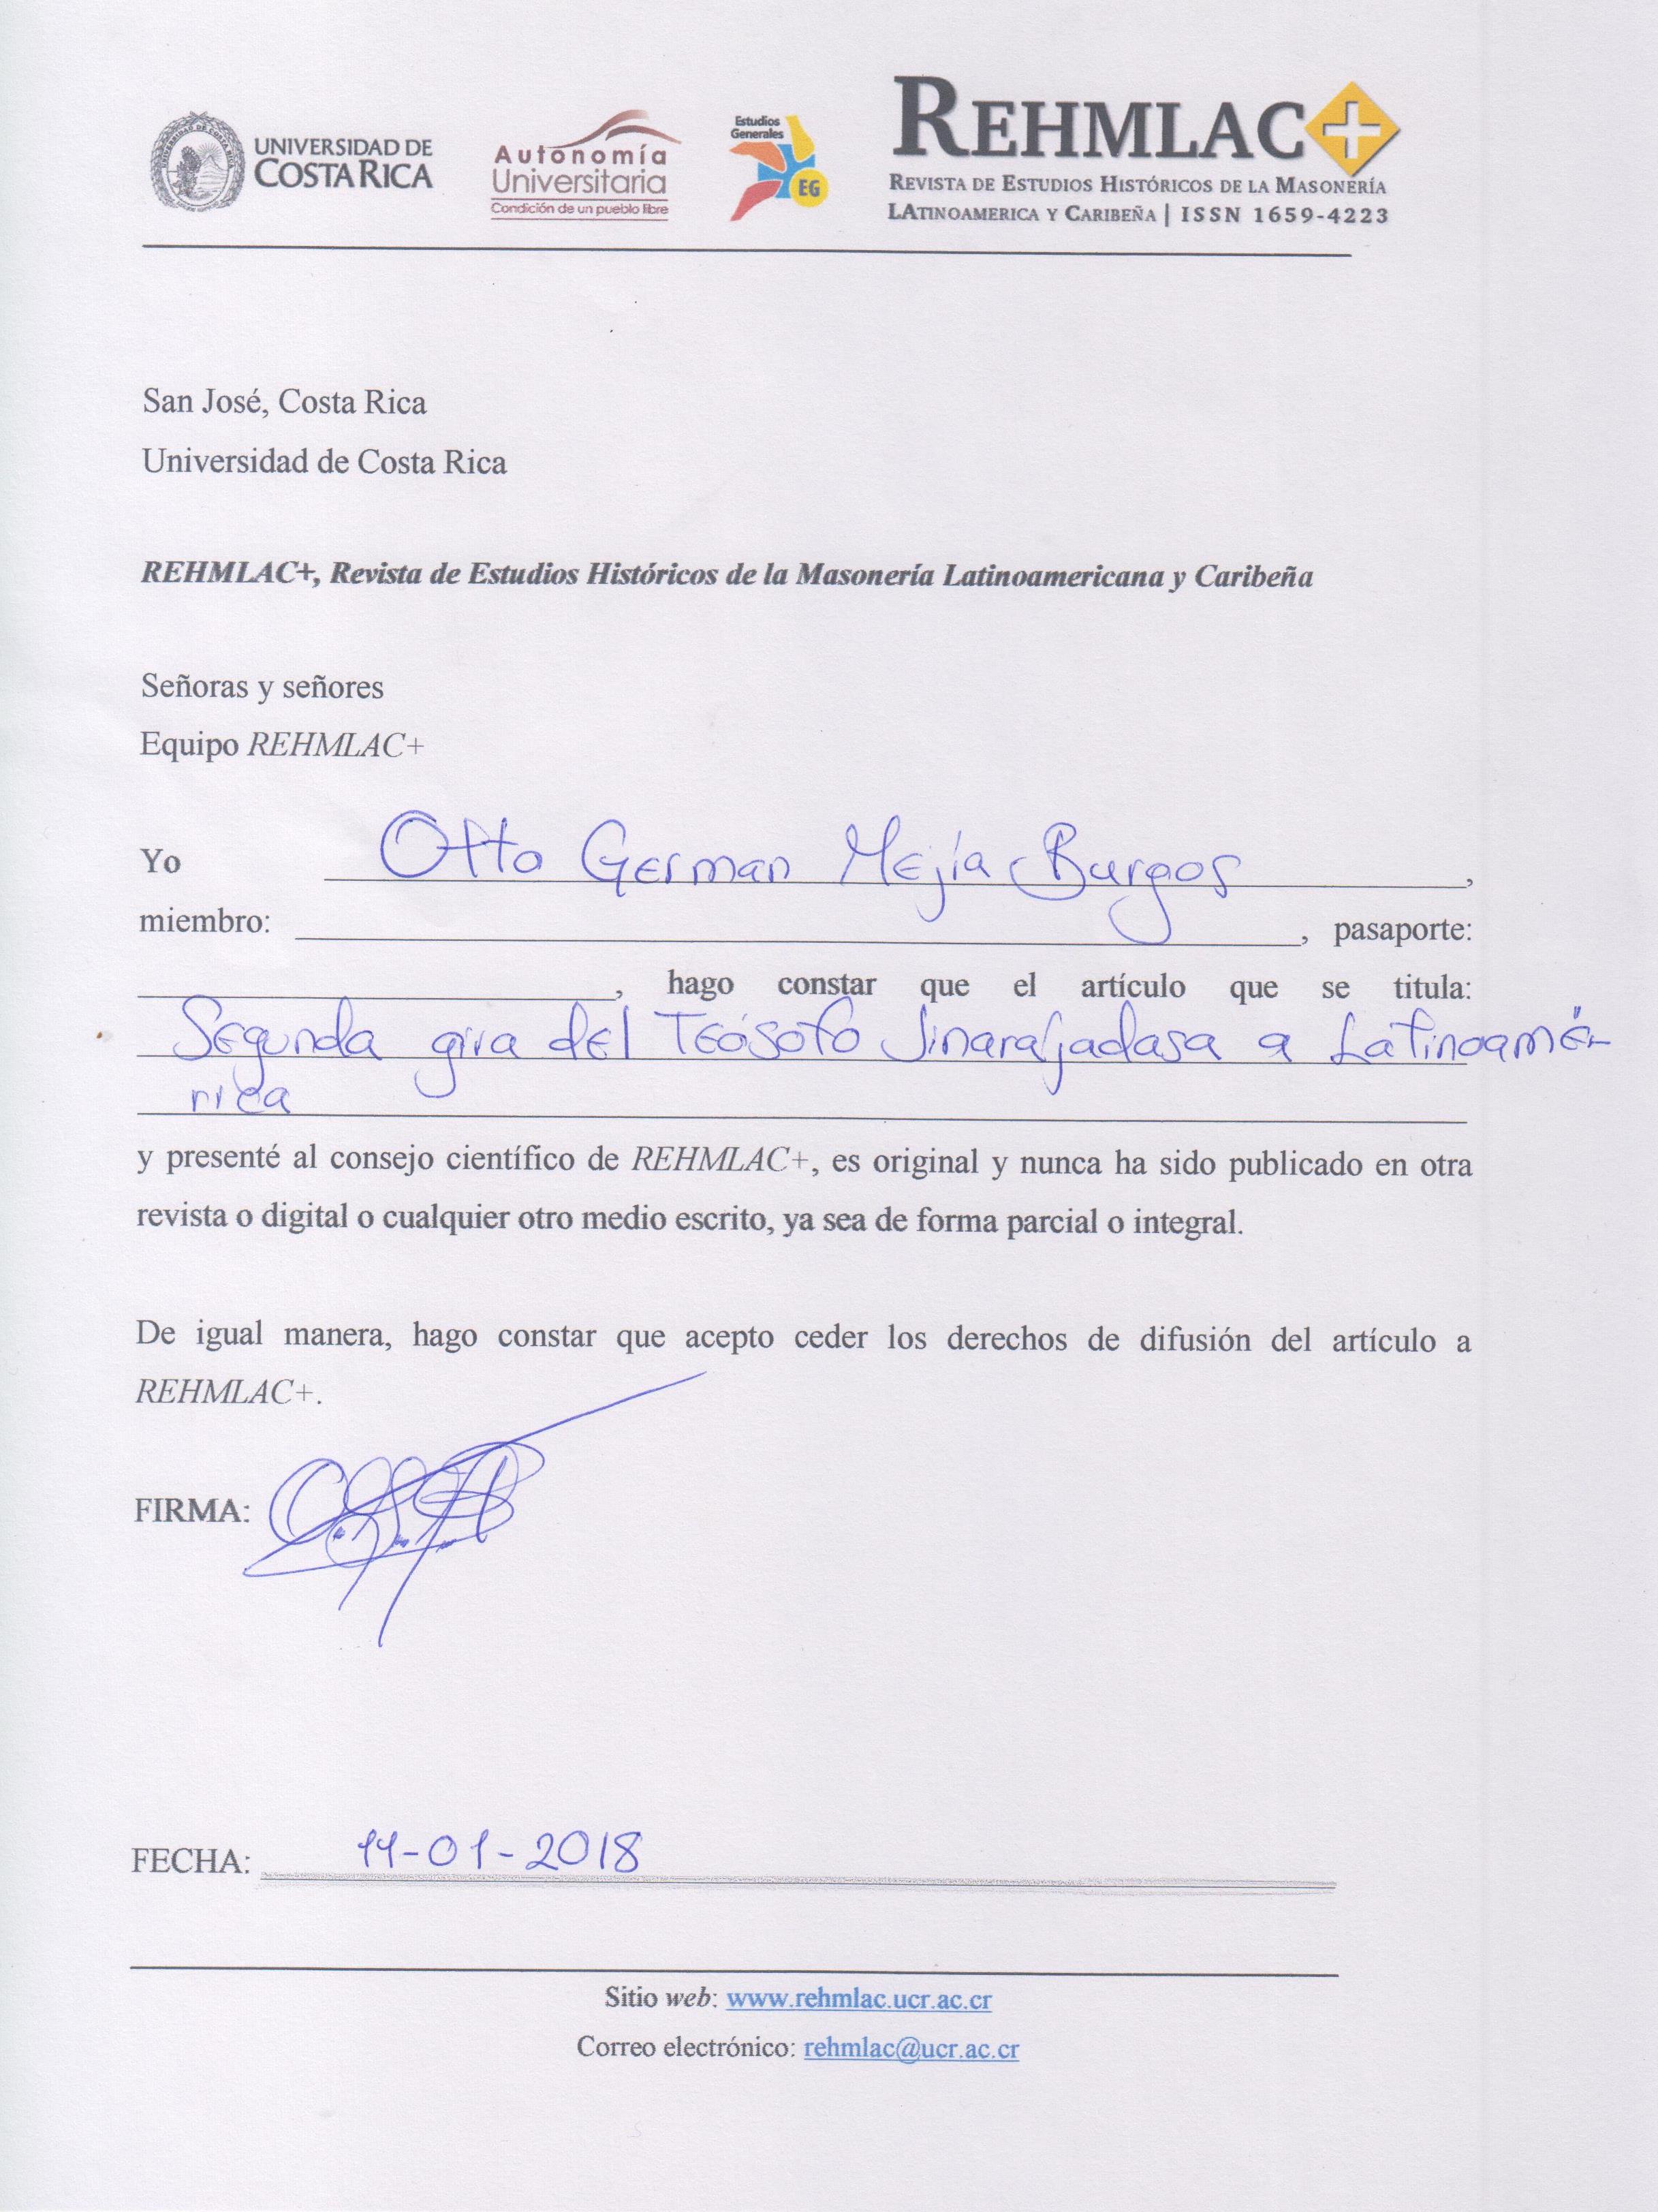 UNIVERSIDAD DE
COSTA RICA
Autonomía
Universitaria
Condición de un pueblo libre
Estudios
Generales
EG
REHMLAC+
REVISTA DE ESTUDIOS HISTÓRICOS DE LA MASONERÍA
LATINOAMERICA Y CARIBEÑA | ISSN 1659-4223
San José, Costa Rica
Universidad de Costa Rica
REHMLAC+, Revista de Estudios Históricos de la Masonería Latinoamericana y Caribeña
Señoras y señores
Equipo REHMLAC+
Yo Otto German Mejía Burgos,
miembro: , pasaporte:
, hago constar que el artículo que se titula:
Segunda gira del Teósofo Jinarajadasa a Latinoamé-
rica
y presenté al consejo científico de REHMLAC+, es original y nunca ha sido publicado en otra
revista o digital o cualquier otro medio escrito, ya sea de forma parcial o integral.
De igual manera, hago constar que acepto ceder los derechos de difusión del artículo a
REHMLAC+.
FIRMA:
FECHA: 11-01-2018
Sitio web: www.rehmlac.ucr.ac.cr
Correo electrónico: rehmlac@ucr.ac.cr